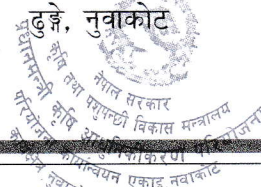 ढुङ्गे, नुवाकोट
नेपाल सरकार
कृषि तथा पशुपन्छी विकास मन्त्रालय
प्रधानमन्त्री कृषि आधुनिकीकरण परियोजना
परियोजना कार्यान्वयन एकाइ नुवाकोट